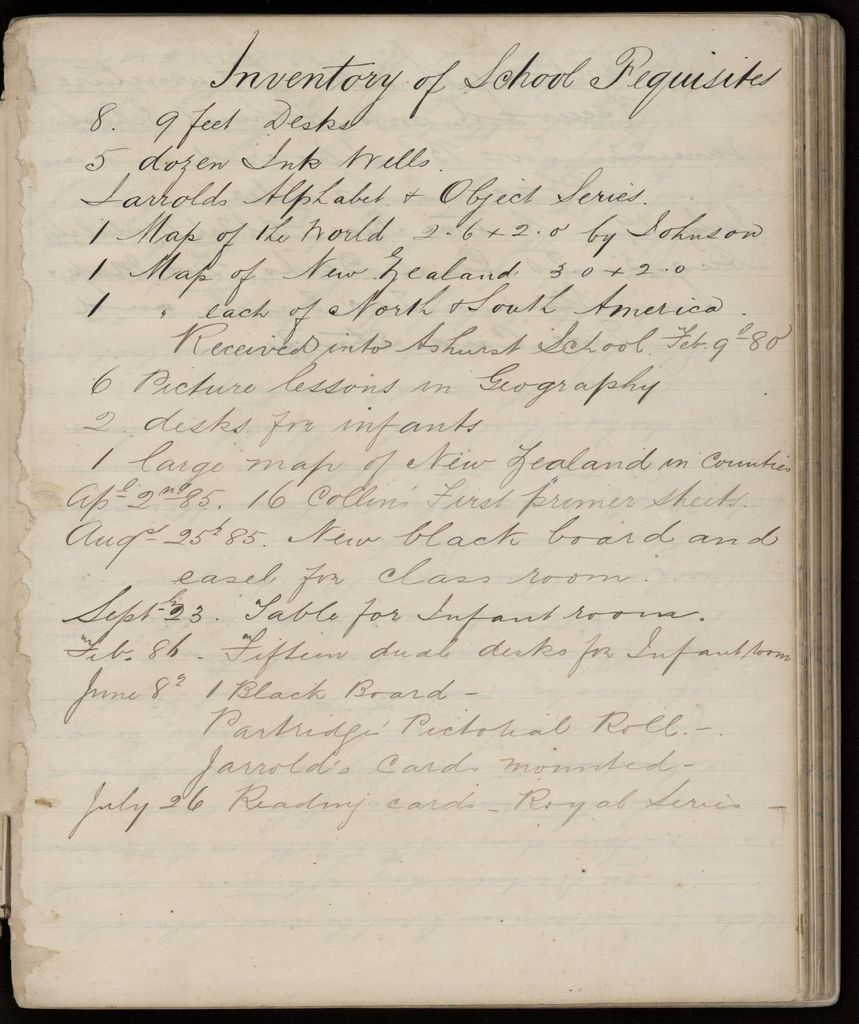 Inventory of School Requisites
8. 9 feet Desks
5 dozen Ink Wells.
Jarrolds Alphabet & Object Series.
1 Map of the World 2.6 + 2.0 by Johnson
1 Map of New Zealand 3.0 + 2.0
1 " each of North & South America.
Received into Ashurst School. Feb. 9th 80
6 Picture lessons in Geography
2 desks for infants
1 large map of New Zealand in Counties
Apl 2nd 85. 16 Collin's First primer sheets.
Augst 25th 85. New black board and
easel for class room.
Septbr 23. Table for Infant room.
Feb. 86. Fifteen dual desks for Infant room
June 8th 1 Black Board -
Partridge's Pictorial Roll. -
Jarrold's Cards mounted -
July 26 Reading cards - Royal Series -